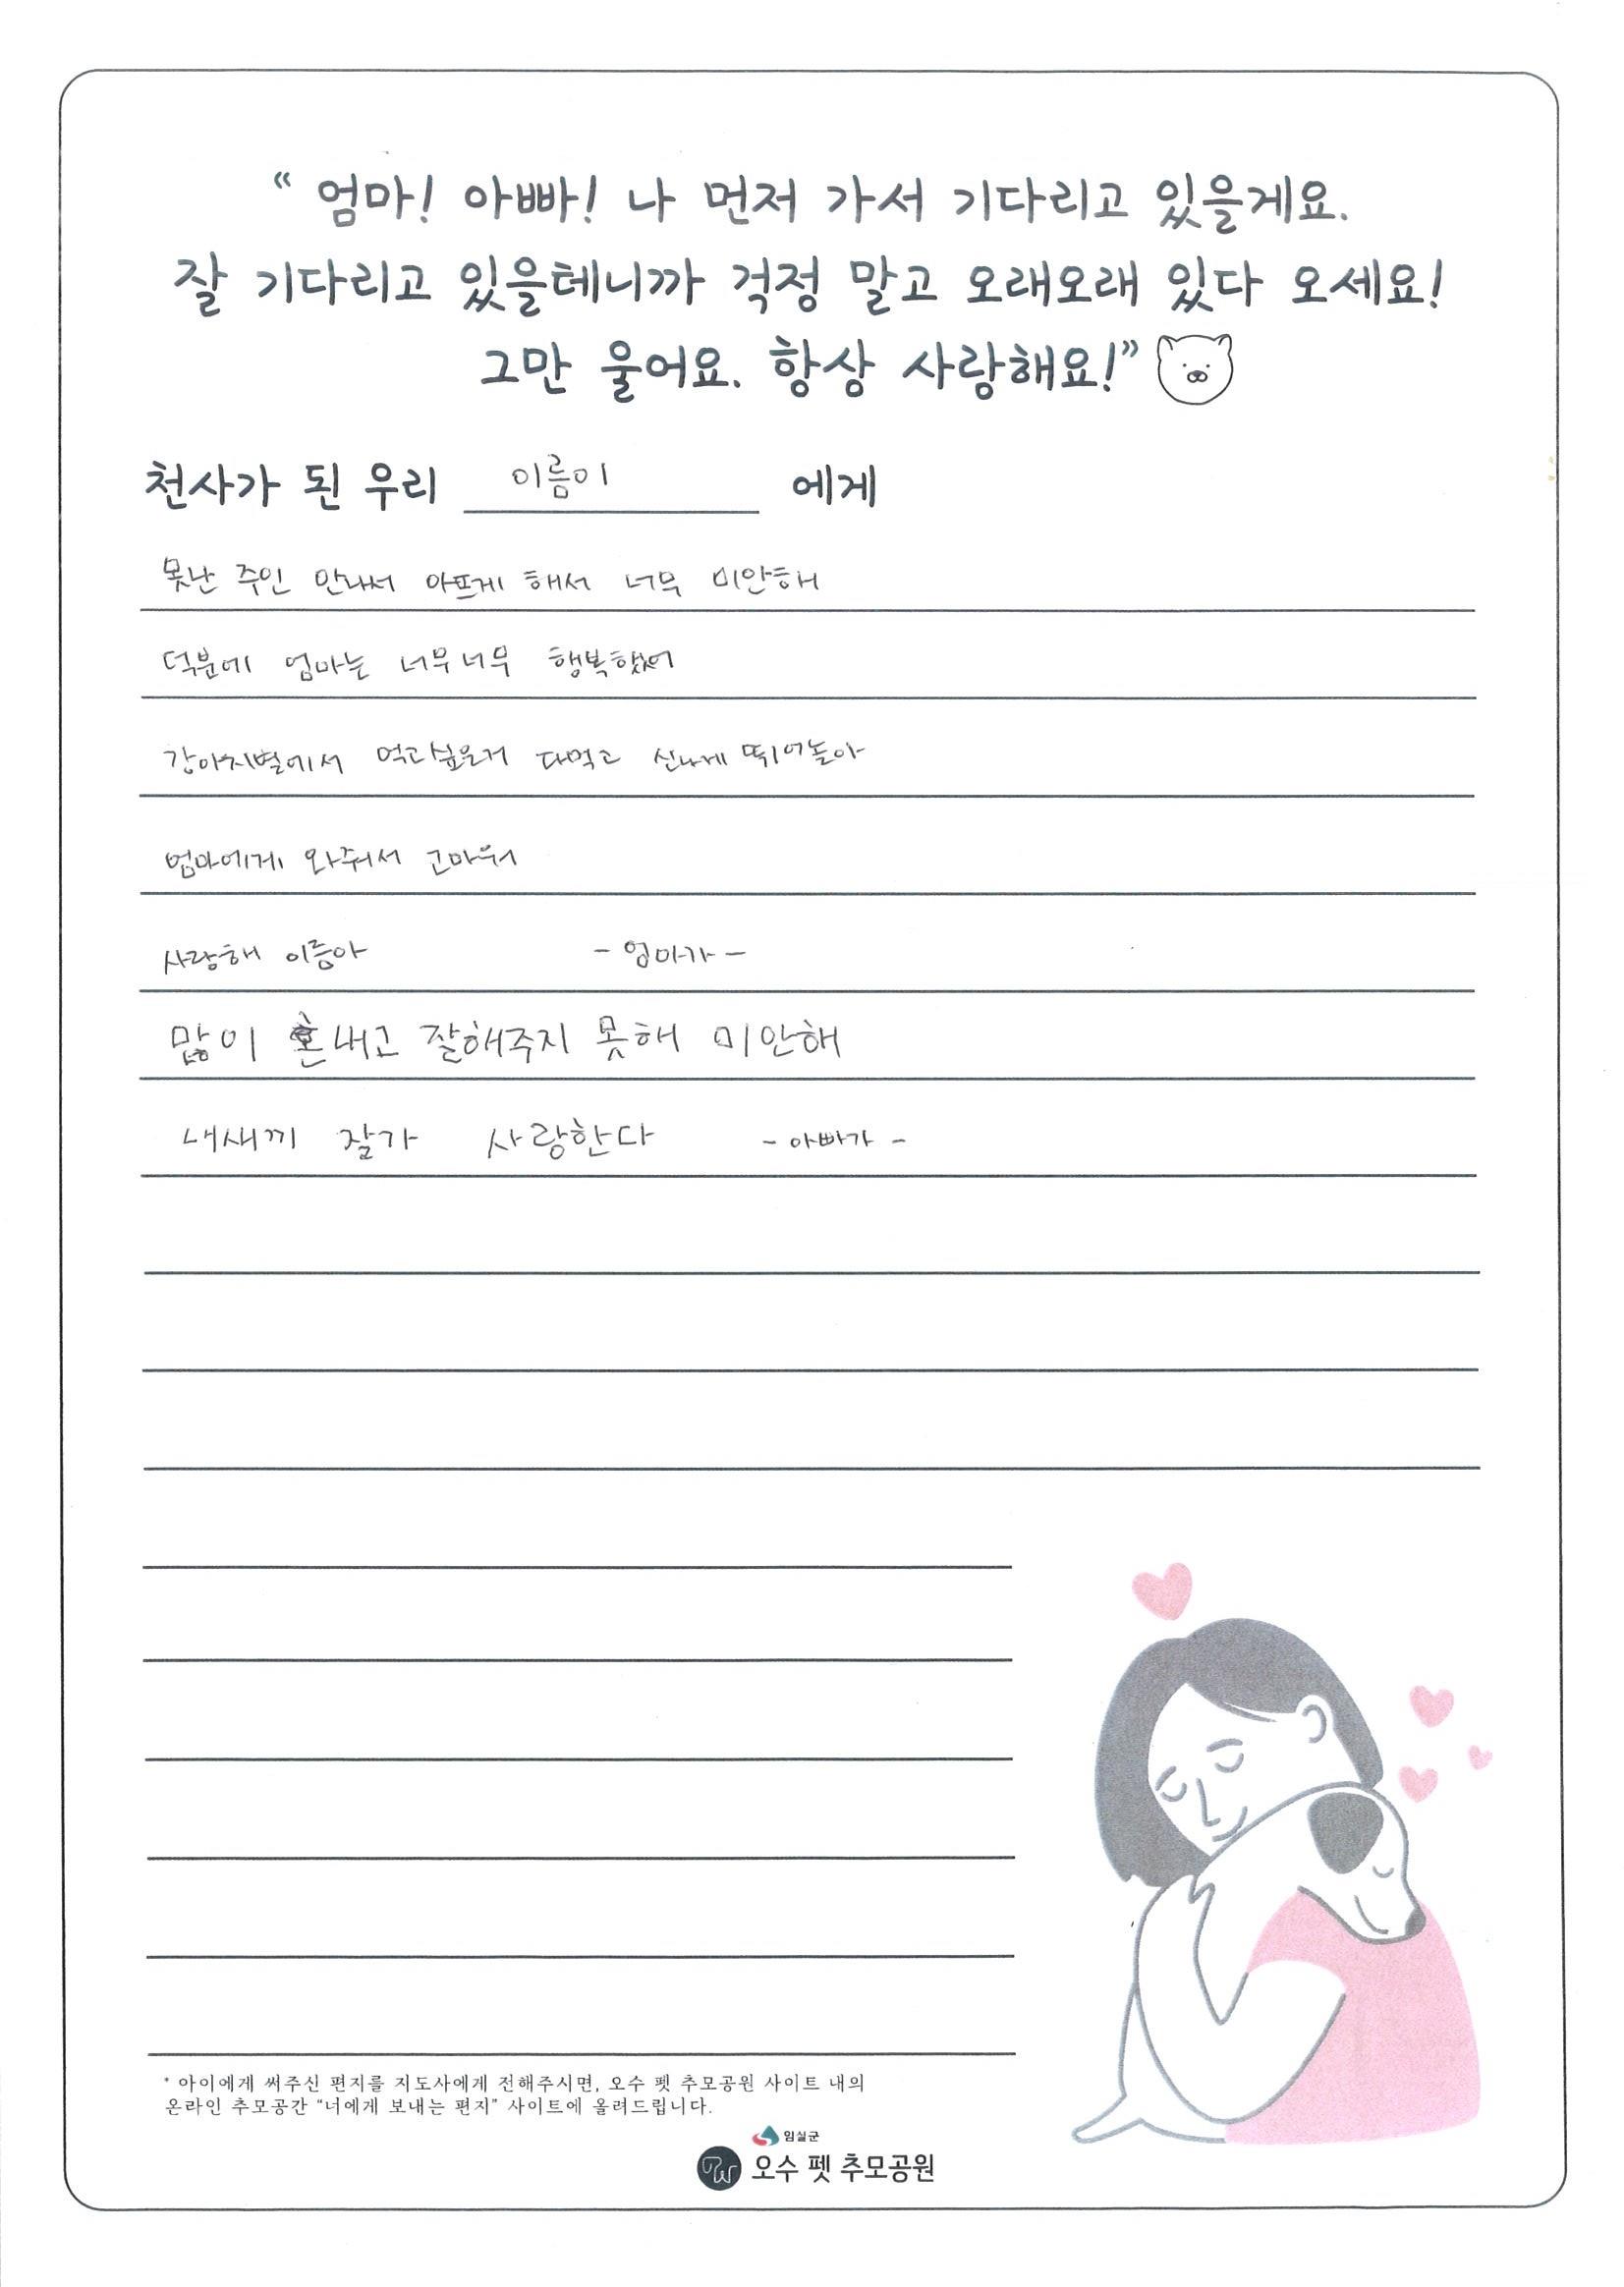 “ 엄마! 아빠! 나 먼저 가서 기다리고 있을게요.
잘 기다리고 있을테니까 걱정 말고 오래오래 있다 오세요!
그만 울어요. 항상 사랑해요!”
천사가 된 우리 이름이 에게
못난 주인 만나서 아프게 해서 너무 미안해
덕분에 엄마는 너무너무 행복했어
강아지별에서 먹고싶은거 다먹고 신나게 뛰어놀아
엄마에게 와줘서 고마워
사랑해 이름아 - 엄마가 -
많이 혼내고 잘해주지 못해 미안해
내새끼 잘가 사랑한다 - 아빠가 -
* 아이에게 써주신 편지를 지도사에게 전해주시면, 오수 펫 추모공원 사이트 내의
온라인 추모공간 “너에게 보내는 편지” 사이트에 올려드립니다.
임실군
오수 펫 추모공원